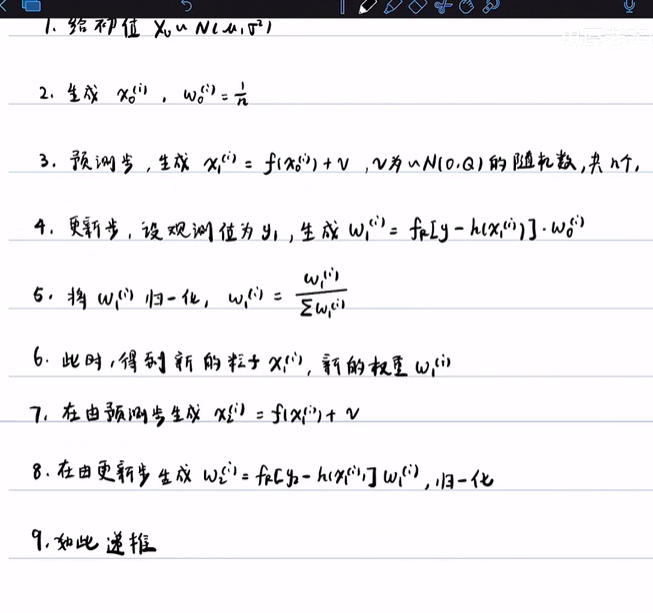 1. 给初值 X₀ ~ N(μ, σ²)
2. 生成 x₀⁽ⁱ⁾, w₀⁽ⁱ⁾ = 1/n
3. 预测步, 生成 x₁⁽ⁱ⁾ = f(x₀⁽ⁱ⁾) + v, v为 ~ N(0, Q) 的随机数, 共 n个.
4. 更新步, 设观测值为 y₁, 生成 w₁⁽ⁱ⁾ = f_R[y - h(x₁⁽ⁱ⁾)] · w₀⁽ⁱ⁾
5. 将 w₁⁽ⁱ⁾ 归一化, w₁⁽ⁱ⁾ = w₁⁽ⁱ⁾ / Σw₁⁽ⁱ⁾
6. 此时, 得到新的粒子 x₁⁽ⁱ⁾, 新的权重 w₁⁽ⁱ⁾
7. 在由预测步生成 x₂⁽ⁱ⁾ = f(x₁⁽ⁱ⁾) + v
8. 在由更新步生成 w₂⁽ⁱ⁾ = f_R[y₂ - h(x₁⁽ⁱ⁾)] w₁⁽ⁱ⁾, 归一化
9. 如此递推